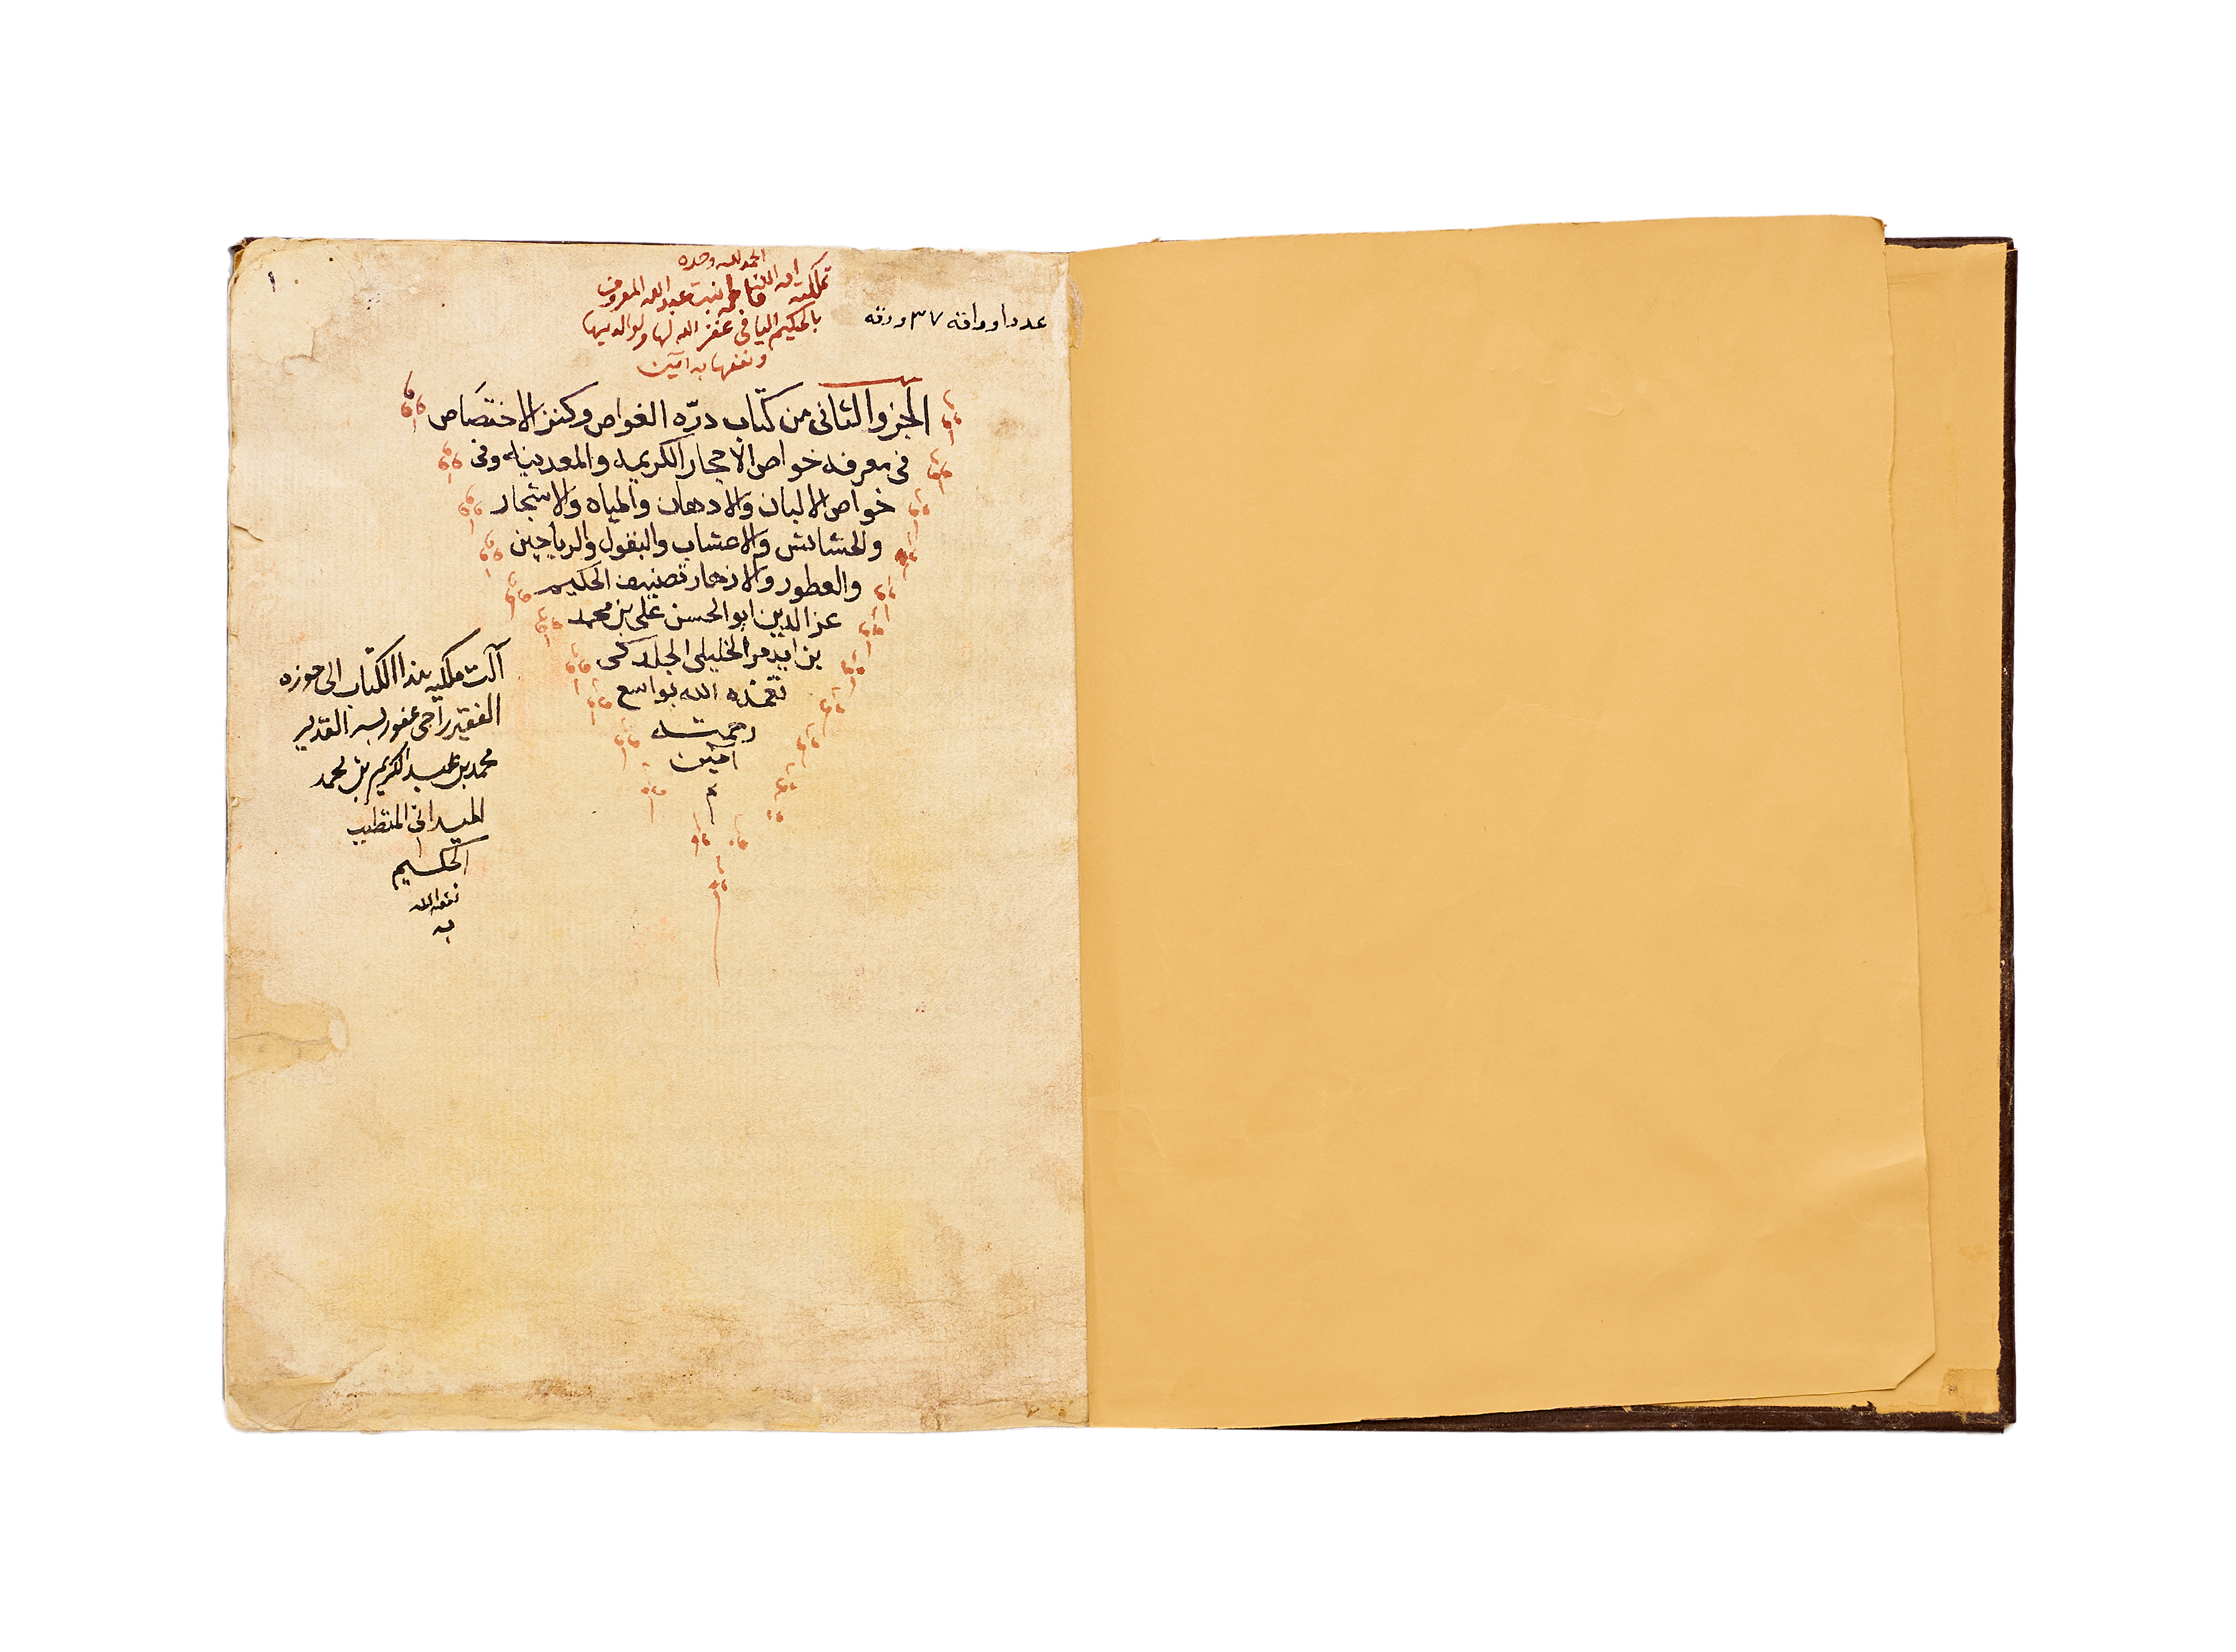 الحمد لله وحده
تملكته امة الله فاطمه بنت عبد الله المعروف
بالحكيم اليافي غفر الله لها ولوالديها
ونفعها به آمين
عدد اوراقه ٣٧ ورقه
١
الجزو الثانى من كتاب درّه الغواص وكنز الاختصاص
فى معرفه خواص الاحجار الكريمه والمعدنيه وفى
خواص الالبان والادهان والمياه والاشجار
والحشائش والاعشاب والبقول والرياحين
والعطور والازهار تصنيف الحكيم
عز الدين ابو الحسن على بن محمد
بن ايدمر الخليلى الجلدكى
تغمده الله بواسع
رحمته
آمين
م
آلت ملكية هذا الكتاب الى حوزه
الفقير راجى عفو ربه القدير
محمد بن عبد الكريم بن محمد
الميدانى المتطبب
الحكيم
نفعه الله
به